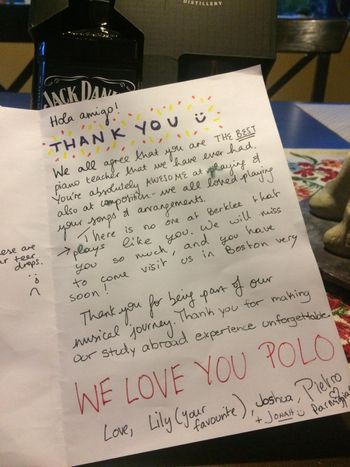 DISTILLERY
JACK DAN
Hola amigo!
THANK YOU
We all agree that you are THE BEST
piano teacher that we have ever had.
You're absolutely AWESOME at playing &
also at competition - we all loved playing
your songs & arrangements.
There is no one at Berklee that
→ plays like you. We will miss
you so much, and you have
to come visit us in Boston very
soon!
Thank you for being part of our
musical journey. Thank you for making
our study abroad experience unforgettable.
WE LOVE YOU POLO
Love, Lily (your favourite), Joshua, Pietro
+ JONAH Parmigia
ese are
ur tear
drops.